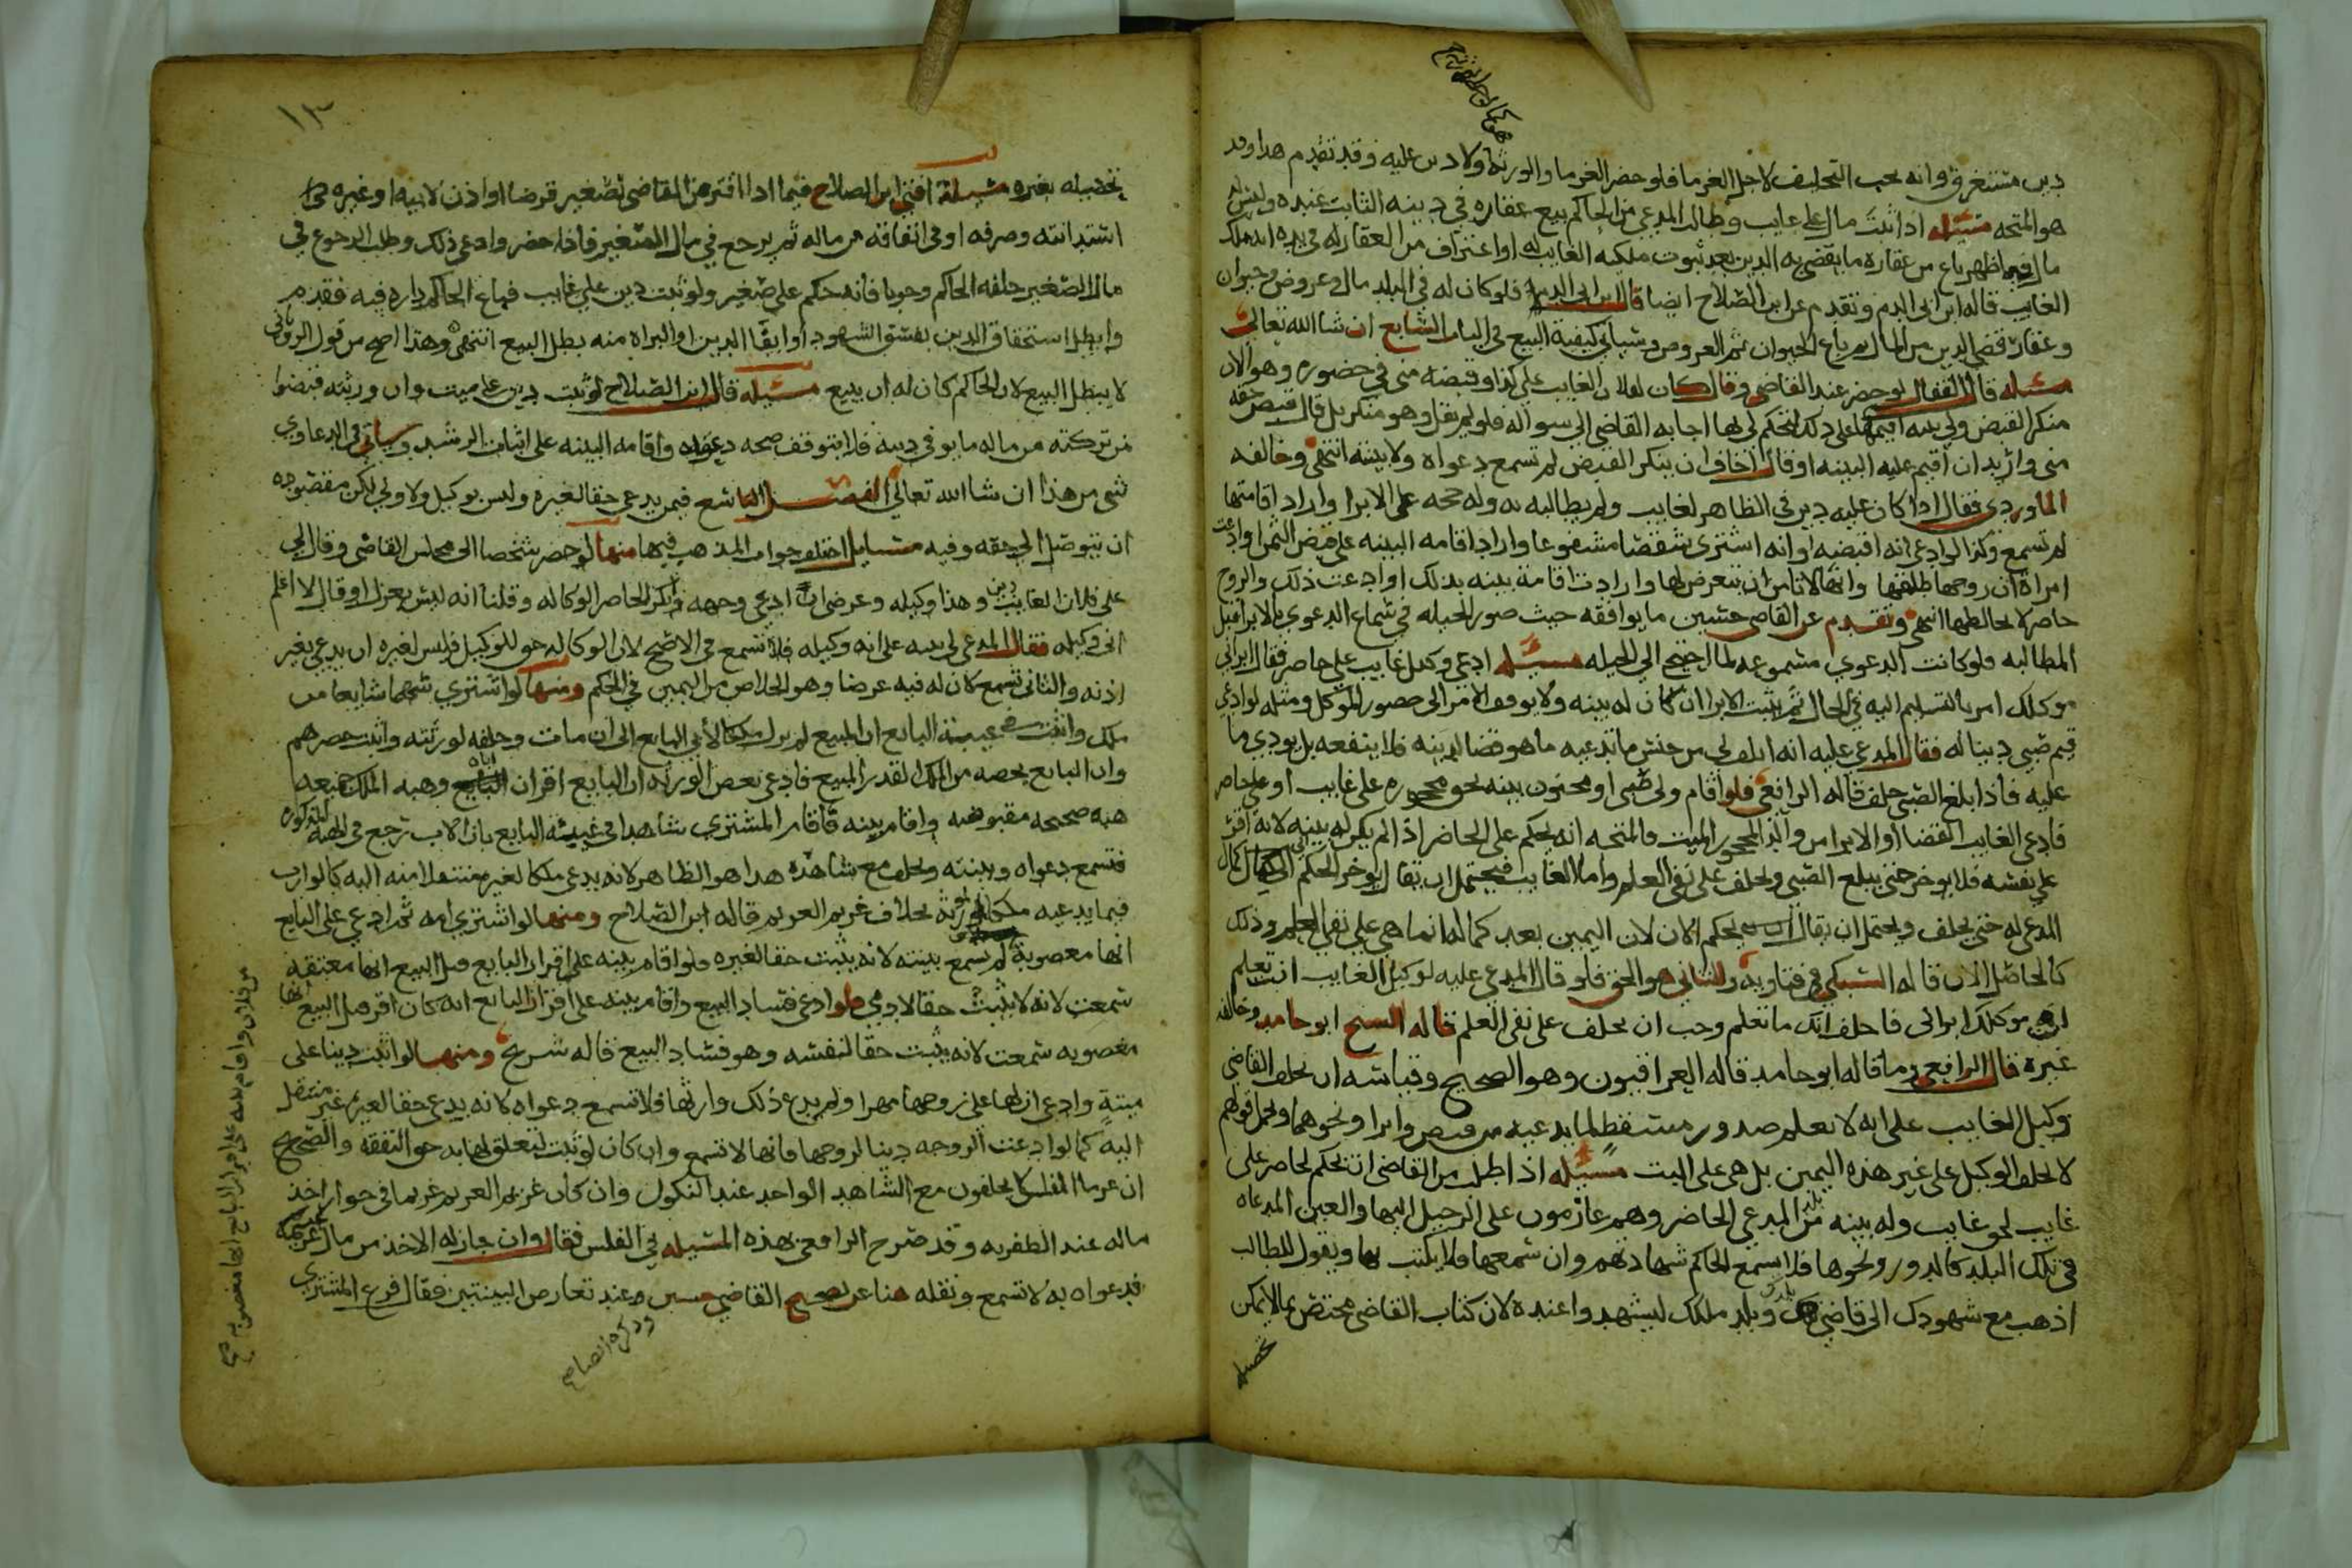 دين مستغرق وانه يجب التحليف لاجل الغرما فلو حضر الغرما والورثة ولا دين عليه وقد تقدم هذا وقد
هو المتجه مسئله اذا ثبت مال على غايب وطالب المدعي من الحاكم بيع عقاره في دينه الثابت عنده وليس له
مال فيها ظهر باع من عقاره ما يقضي به الدين بعد ثبوت ملكيه الغايب له او اعتراف من العقار له في يده انه ملك
الغايب قاله ابن ابي الدم وتقدم عن ابن الصلاح ايضا قال ابن ابي الدم فلو كان له في البلد مال وعروض وحيوان
وعقار قضي الدين من المال ثم باع الحيوان ثم العروض وسياتي كيفية البيع في الباب السابع ان شا الله تعالى
مسئله قال القفال لو حضر عند القاضي وقال كان لفلان الغايب علي كذا وقبضه مني في حضوره وهو الان
منكر القبض ولي بينه اقيمها على ذلك لتحكم لي بها اجابه القاضي الى سواله فلو لم يقل وهو منكر بل قال قبض حقه
مني واريد ان اقيم عليه البينه او قال اخاف ان ينكر القبض لم تسمع دعواه ولا بينته انتهى وخالفه
الماوردي فقال اذا كان عليه دين في الظاهر لغايب ولم يطالبه به وله حجه على الابرا واراد اقامتها
لم تسمع وكذا لو ادعى انه اقبضه او انه اشترى شقصا مشفوعا واراد اقامه البينه على قبض الثمن او ادعت
امراة ان زوجها طلقها وانها لا تامن ان يتعرض لها وارادت اقامة بينه بذلك او ادعت ذلك والزوج
حاضر لا يخالطها انتهى وتقدم عن القاضي حسين ما يوافقه حيث صور الحيله في سماع الدعوى بالابرا قبل
المطالبه فلو كانت الدعوى مسموعه لما احتيج الى الحيله مسئله ادعى وكيل غايب على حاضر فقال ابراني
موكلك امر بالتسليم اليه في الحال ثم يثبت الابرا ان كان له بينه ولا يوقف الامر الى حضور الموكل ومثله لو ادعى
قيم صبي دينا له فقال المدعى عليه انه اتلف لي من جنس ما تدعيه ما هو قضا لدينه فلا ينفعه بل يودي ما
عليه فاذا بلغ الصبي حلف قاله الرافعي فلو اقام ولي صبي او مجنون بينه بحق محجوره على غايب او على حاضر
فادعى الغايب القضا او الابرا من والد المحجور الميت فالمتجه انه يحكم على الحاضر اذا لم يكن له بينه لانه اقر
على نفسه فلا يوخر حتى يبلغ الصبي ويحلف على نفي العلم واما الغايب فيحتمل ان يقال يوخر الحكم الى كمال
المدعى له حتى يحلف ويحتمل ان يقال يحكم الان لان اليمين بعد كماله انما هي على نفي العلم وذلك
كالحاصل الان قاله السبكي في فتاويه والثاني هو الحق فلو قال المدعى عليه لوكيل الغايب انت تعلم
ان موكلك ابراني فاحلف انك ما تعلم وجب ان يحلف على نفي العلم قاله الشيخ ابو حامد وخالفه
غيره قال الرافعي وما قاله ابو حامد قاله العراقيون وهو الصحيح وقياسه ان يحلف القاضي
وكيل الغايب على انه لا يعلم صدور مسقط لما يدعيه من قبض وابرا ونحوهما ويحمل قولهم
لا يحلف الوكيل على غير هذه اليمين بل هي على البت مسئله اذا طلب من القاضي ان يحكم لحاضر على
غايب بحق غايب وله بينه من بلد المدعي الحاضر وهم عازمون على الرحيل اليها والعين المدعاه
في تلك البلد كالدور ونحوها فلا يسمع الحاكم شهادتهم وان سمعها فلا يكتب بها ويقول للطالب
اذهب مع شهودك الى قاضي بلدك وبلد ملكك ليشهدوا عنده لان كتاب القاضي مختص بما لا يمكن
تحصيله
١٣
تحصيله بغيره مسئلة افتى ابن الصلاح فيما اذا اقترض القاضي لصغير قرضا او اذن لابيه او غيره في
استدانته وصرفه او في انفاقه من ماله ثم يرجع في مال الصغير فاذا حضر وادعى ذلك وطلب الرجوع في
مال الصغير حلفه الحاكم وجوبا فانه حكم على صغير ولو ثبت دين على غايب فباع الحاكم داره فيه فقدم
وابطل استحقاق الدين بفسق الشهود او ايفا الدين او البراة منه بطل البيع انتهى وهذا اصح من قول الروياني
لا يبطل البيع لان الحاكم كان له ان يبيع مسئله قال ابن الصلاح لو ثبت دين على ميت وان ورثته قبضوا
من تركته من ماله ما يوفي دينه فلا يتوقف صحه دعواه واقامه البينه على اثبات الرشد وسياتي في الدعاوي
شي من هذا ان شا الله تعالى الفصل التاسع فيمن يدعي حقا لغيره وليس بوكيل ولا ولي لكن مقصوده
ان يتوصل الى حقه وفيه مسايل اختلف جواب المذهب فيها منها لو حضر شخصا الى مجلس القاضي وقال لي
على فلان الغايب دين وهذا وكيله وعرضي ان ادعي وجهه فانكر الحاضر الوكاله وقلنا انه ليس بعزل او قال لا اعلم
اني وكيله فقال المدعي لي بينه على انه وكيله فلا تسمع في الاصح لان الوكاله حق للوكيل فليس لغيره ان يدعي بغير
اذنه والثاني تسمع كان له فيه عرضا وهو الخلاص من اليمين في الحكم ومنها لو اشترى سهما شايعا من
ملك واثبت عيبة البايع ان المبيع لم يزل ملكا لابي البايع الى ان مات وخلفه لورثته واثبت حصرهم
وان البايع يخصه من الملك القدر المبيع فادعى بعض الورثه ان البايع اقر ان اباه وهبه الملك جميعه
هبه صحيحه مقبوضه واقام بينه فاقام المشتري شاهدا في غيبته البايع بان الاب رجع في الهبة المذكوره
فتسمع دعواه وبينته ويحلف مع شاهده هذا هو الظاهر لانه يدعي ملكا لغيره منتقلا منه اليه كالوارث
فيما يدعيه ملكا لمورثه بخلاف غريم الغريم قاله ابن الصلاح ومنها لو اشترى امه ثم ادعى على البايع
انها مغصوبة لم تسمع بينته لانه يثبت حقا لغيره ولو اقام بينه على اقرار البايع قبل البيع انها معتقه
سمعت لانه لا يثبت حقا لادمي فلو ادعى فساد البيع واقام بينه على اقرار البايع انه كان اقر قبل البيع انها
مغصوبه سمعت لانه يثبت حقا لنفسه وهو فساد البيع قاله شريح ومنها لو اثبت دينا على
ميتة وادعى ان لها على زوجها مهرا ولم يدع ذلك وارثها فلا تسمع دعواه كانه يدعي حقا لغيره غير منتقل
اليه كما لو ادعت الزوجه دينا لزوجها فانها لا تسمع وان كان لو ثبت لتعلق لها به حق النفقه والصحيح
ان غرما المفلس لا يحلفون مع الشاهد الواحد عند النكول وان كان غريم الغريم غريما في جواز اخذ
ماله عند الظفر به وقد صرح الرافعي بهذه المسئله في الفلس فقال وان جاز له الاخذ من مال غريمه
فدعواه به لا تسمع ونقله هنا عن تصحيح القاضي حسين وعند تعارض البينتين فقال فرع المشتري
من فلان واقام بينه على اقرار البايع انها مغصوبه صح